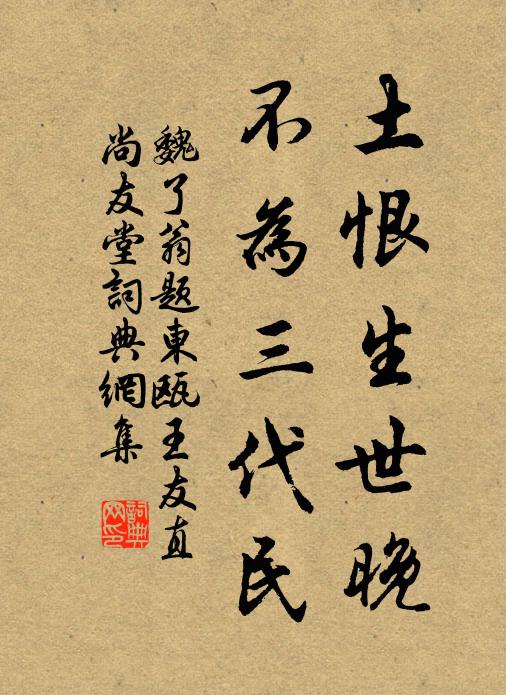 土恨生世晚
不為三代民
魏了翁題東甌王友直
尚友堂詞典網集
詞典网印